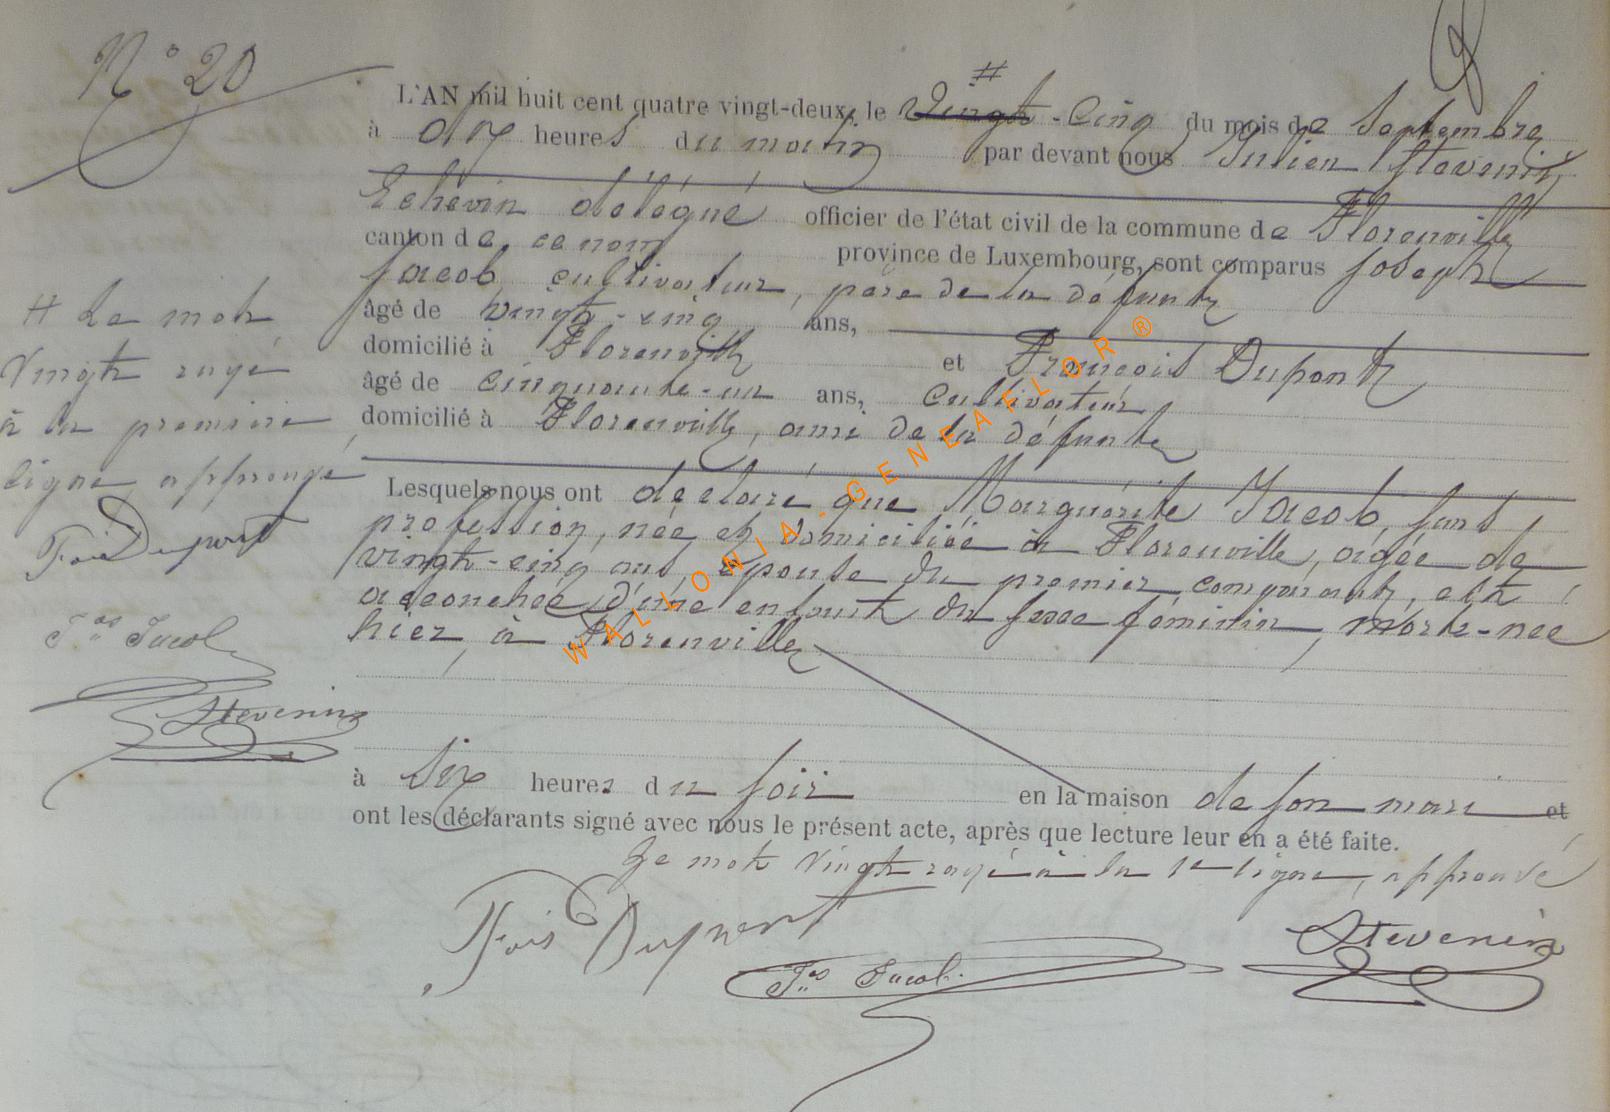 N° 20
L'AN mil huit cent quatre vingt-deux, le # vingt-cinq du mois de Septembre
à dix heures du matin par devant nous Julien Stevenin,
Echevin délégué officier de l'état civil de la commune de Florenville
canton de ce nom province de Luxembourg, sont comparus Joseph
Jacob, cultivateur, père de la défunte
âgé de vingt-cinq ans,
domicilié à Florenville et François Dupont
âgé de cinquante-un ans, cultivateur
domicilié à Florenville, ami de la défunte
Lesquels nous ont déclaré que Marguerite Jacob, sans
profession, née et domiciliée à Florenville, âgée de
vingt-cinq ans, épouse du premier comparant, est
accouchée d'une enfant du sexe féminin, morte-née
hier, à Florenville
à six heures du soir en la maison de son mari et
ont les déclarants signé avec nous le présent acte, après que lecture leur en a été faite.
Le mot vingt rayé à la 1e ligne, approuvé
Fçois Dupont
Jos Jacob
Stevenin
# Le mot
vingt rayé
à la première
ligne, approuvé
Fçois Dupont
Jos Jacob
Stevenin
WALLONIA-GENEAFLOR®